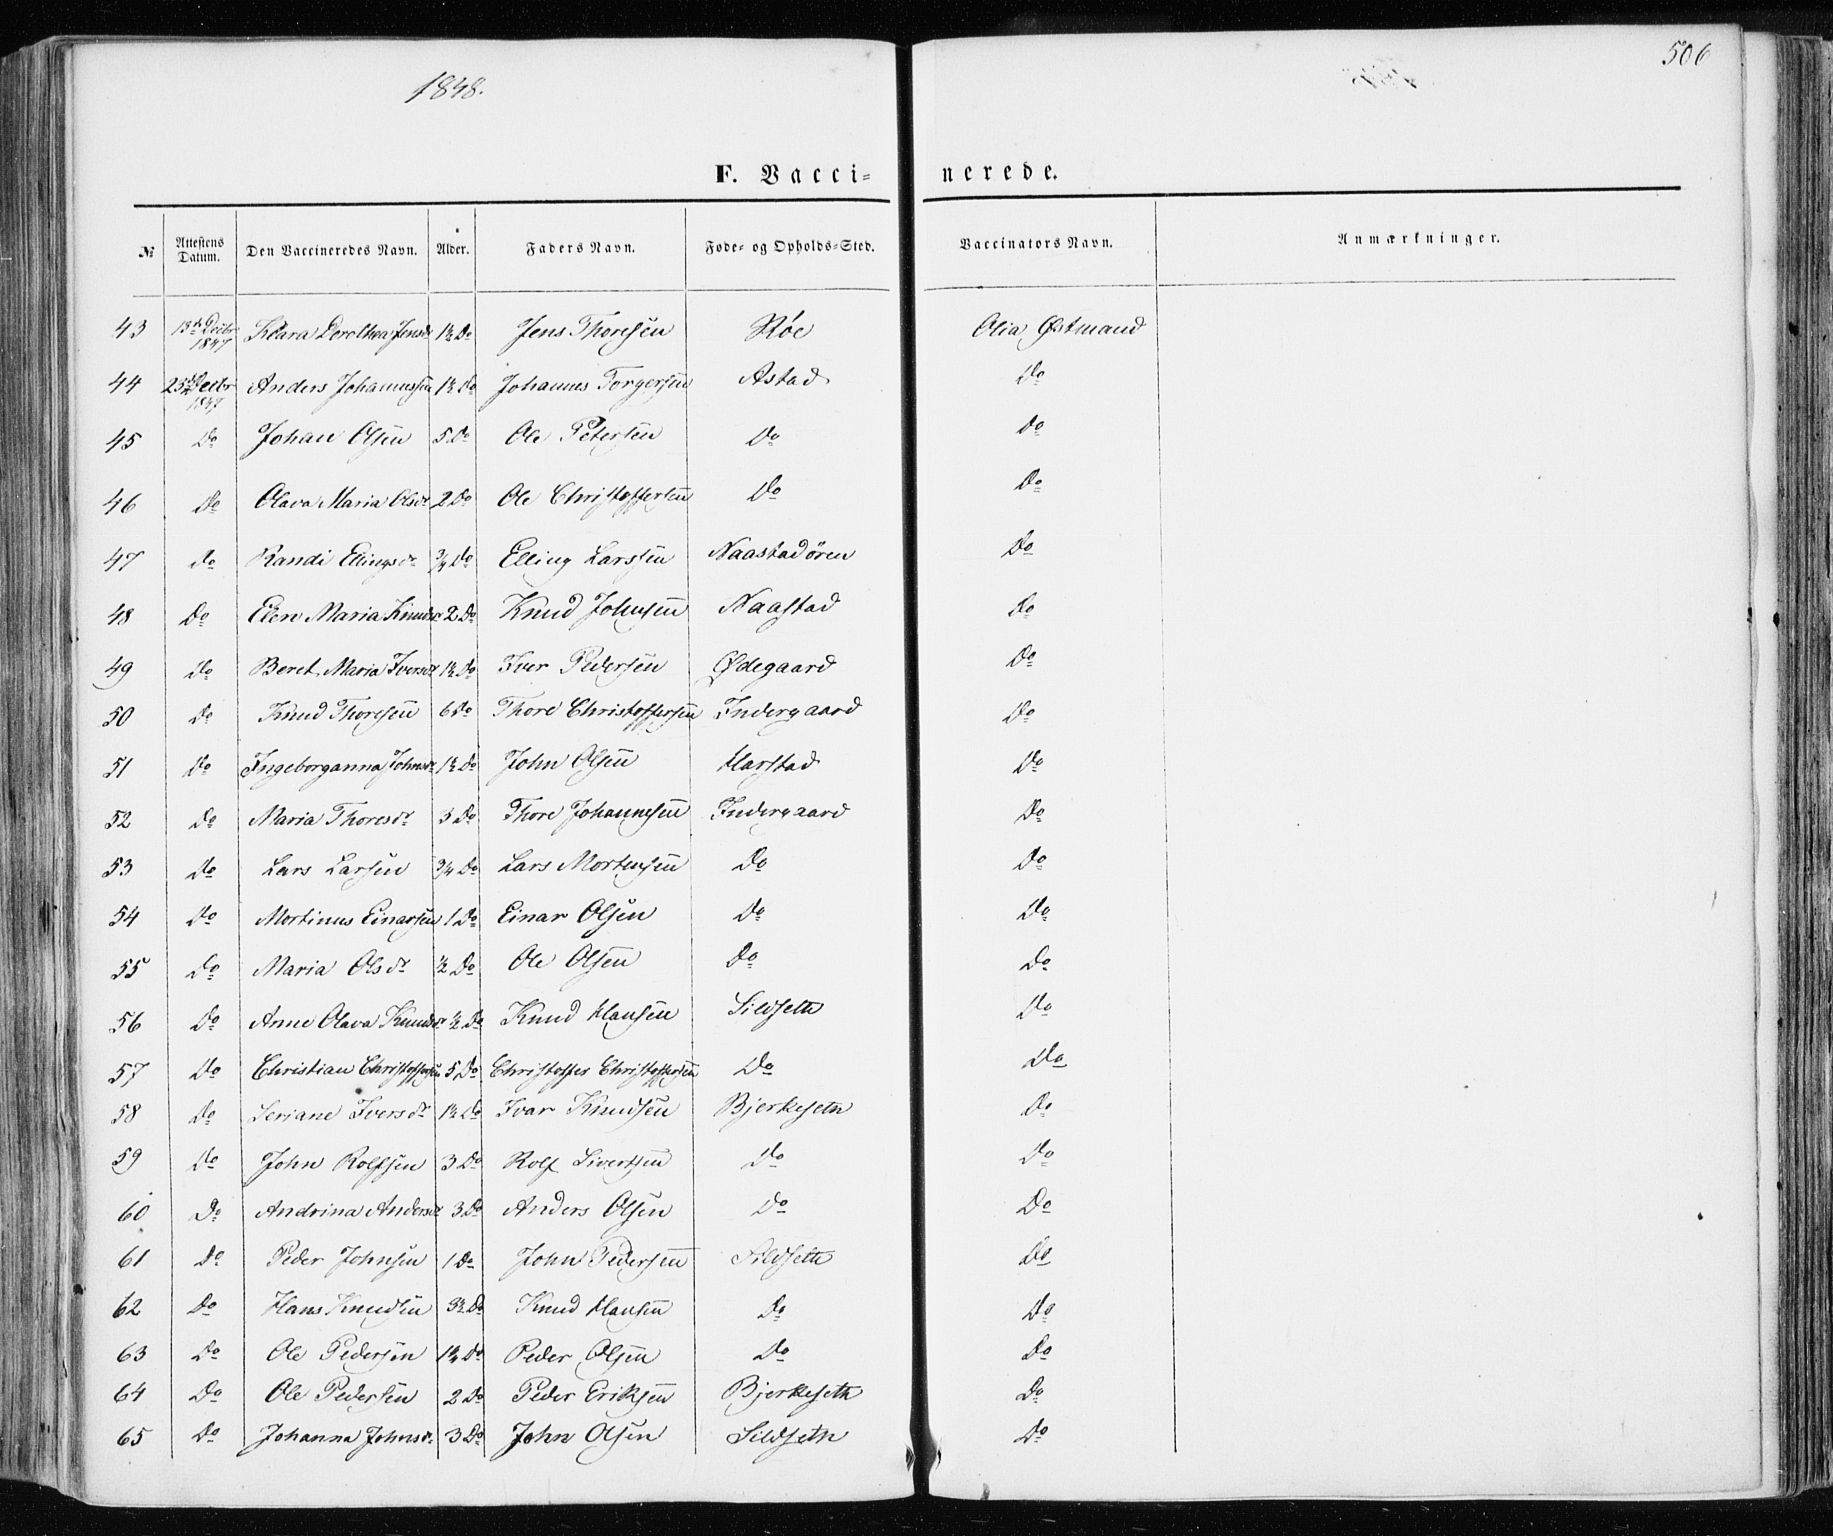 506
1848.
F. Vacci- nerede.
№ Attestens Datum. Den Vaccineredes Navn. Alder. Faders Navn. Føde- og Opholds-Sted. Vaccinators Navn. Anmærkninger.
43 13de Decbr 1847 Klara Dorothea Jensdr 1½ Do Jens Thoresen Røe Olia Østmand
44 25de Decbr 1847 Anders Johannessen 1½ Do Johannes Torgersen Astad Do
45 Do Johan Olsen 5 Do Ole Petersen Do Do
46 Do Olava Maria Olsdr 2 Do Ole Christoffersen Do Do
47 do Randi Ellingsdr ¾ Do Elling Larssen Naastadøren Do
48 Do Elen Maria Knudsdr 2 Do Knud Johnsen Naastad Do
49 Do Beret Maria Iversdr 1½ Do Iver Pedersen Ødegaard Do
50 Do Knud Thoresen 6 Do Thore Christoffersen Indergaard Do
51 Do Ingeborganna Johnsdr 1½ Do John Olsen Harstad Do
52 Do Maria Thoresdr 3 Do Thore Johannesen Indergaard Do
53 Do Lars Larsen ¾ Do Lars Mortensen Do Do
54 Do Mortinus Einarsen 1 Do Einar Olsen Do Do
55 Do Maria Olsdr ½ Do Ole Olsen Do Do
56 Do Anne Olava Knudsdr ½ Do Knud Hansen Sildseth Do
57 Do Christian Christoffersen 5 Do Christoffer Christoffersen Do Do
58 Do Seriane Iversdr 1½ Do Ivar Knudsen Bjerkeseth Do
59 Do John Rolfsen 3 Do Rolf Sivertsen Do Do
60 Do Andrina Andersdr 3 Do Anders Olsen Do Do
61 Do Peder Johnsen 1 Do John Pedersen Sildseth Do
62 Do Hans Knudsen 3½ Do Knud Hansen Do Do
63 Do Ole Pedersen 1¾ Do Peder Olsen Do Do
64 Do Ole Pedersen 2 Do Peder Eriksen Bjerkeseth Do
65 Do Johanna Johnsdr 3 Do John Olsen Sildseth Do